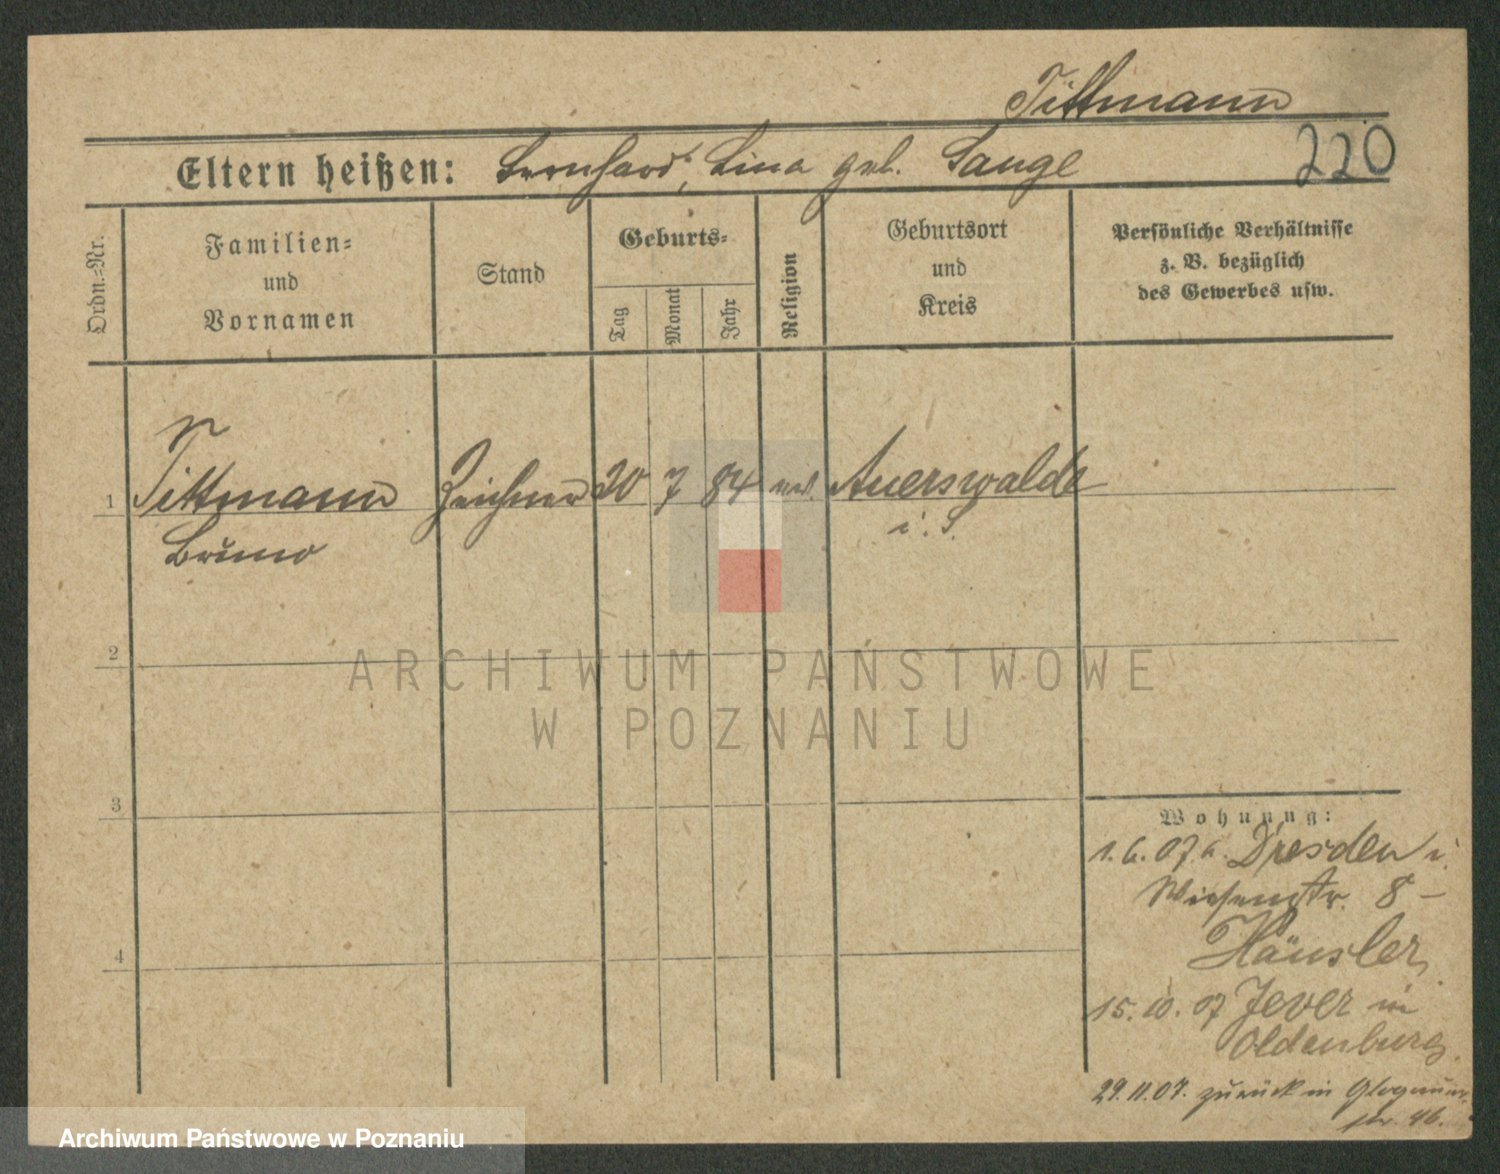 Tittmann
Eltern heißen: Bernhard, Lina geb. Lange
220
Ordn.-Nr.
Familien-
und
Vornamen
Stand
Geburts-
Tag
Monat
Jahr
Religion
Geburtsort
und
Kreis
Persönliche Verhältnisse
z. B. bezüglich
des Gewerbes usw.
1
Tittmann Zeichner 20 7 84 Auerswalde
Bruno i. S.
2
ARCHIWUM PAŃSTWOWE
W POZNANIU
3
4
Wohnung:
1. 6. 07 Dresden
Wiesenstr. 8 -
Häusler
15. 10. 07 Jever in
Oldenburg.
29. 11. 07. zurück in Glogauer
str. 46.
Archiwum Państwowe w Poznaniu